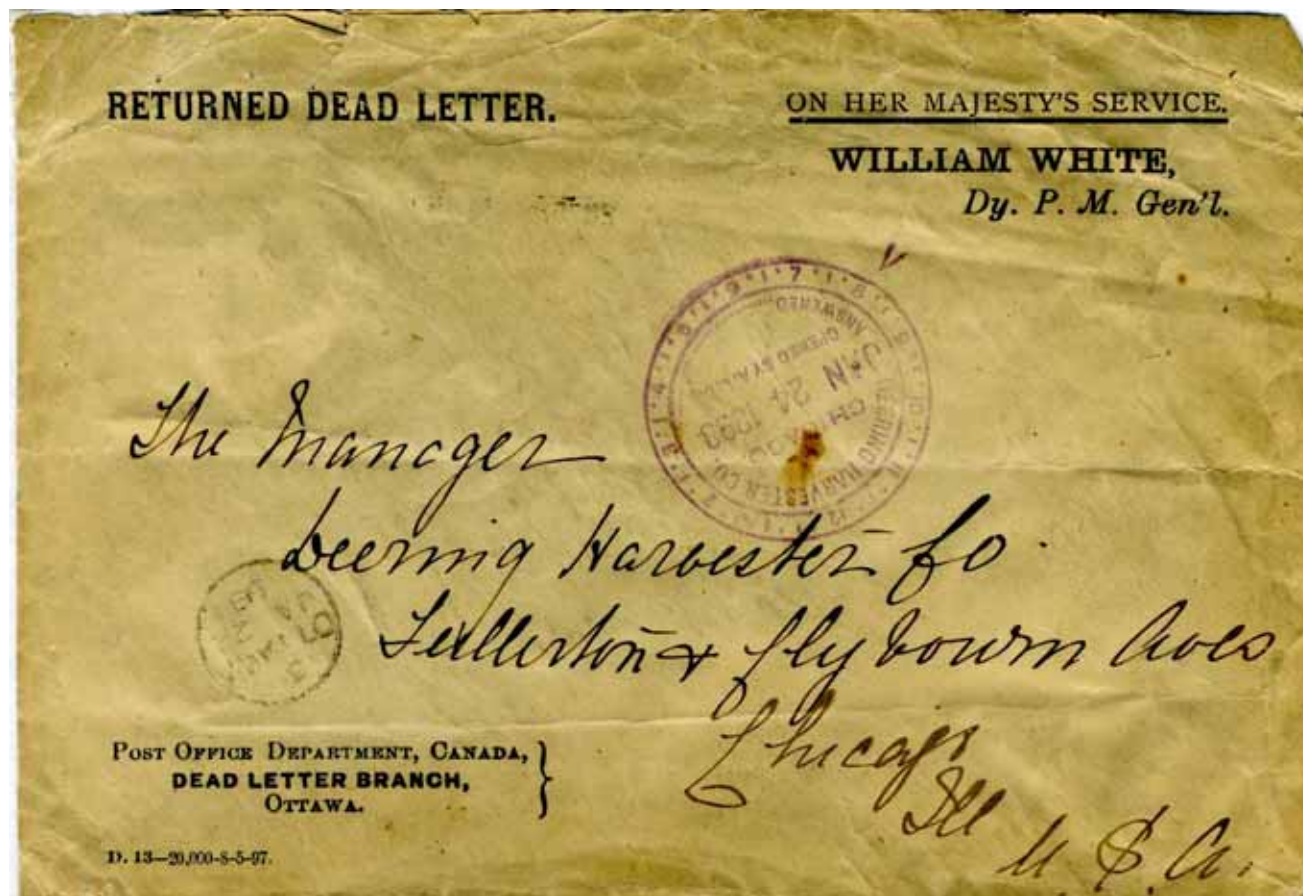 RETURNED DEAD LETTER.
ON HER MAJESTY'S SERVICE.
WILLIAM WHITE,
Dy. P. M. Gen'l.
ANSWERED
OPENED BY
JAN
24
CHICAGO
DEERING HARVESTER CO
The Manager
Deering Harvester Co.
Fullerton & Clybourn Aves
Chicago
Ill
U S A.
POST OFFICE DEPARTMENT, CANADA,
DEAD LETTER BRANCH,
OTTAWA.
D. 13—20,000-8-5-97.